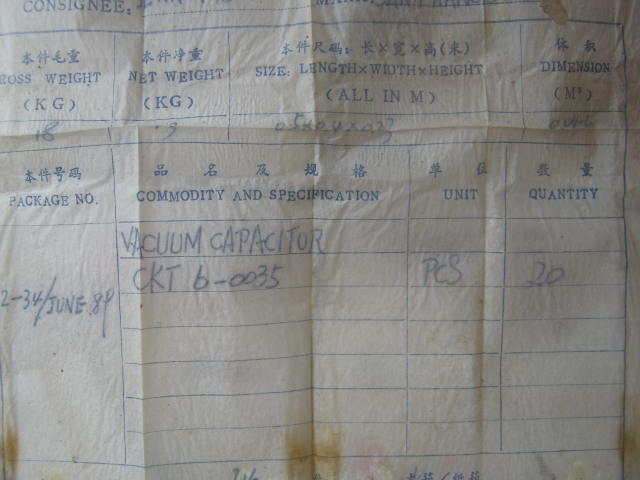 CONSIGNEE:
本件毛重 本件净重 本件尺码：长×宽×高(米) 体 积
ROSS WEIGHT NET WEIGHT SIZE: LENGTH×WIDTH×HEIGHT DIMENSION
(KG) (KG) (ALL IN M) (M³)
18 9
本件号码 品 名 及 规 格 单 位 数 量
PACKAGE NO. COMMODITY AND SPECIFICATION UNIT QUANTITY
VACUUM CAPACITOR
CKT 6-0035 PCS 20
2-34/JUNE 89